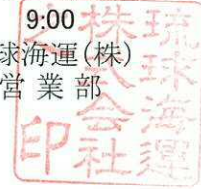 9:00
球海運(株)
営業部
琉球海運
株式会社
之印